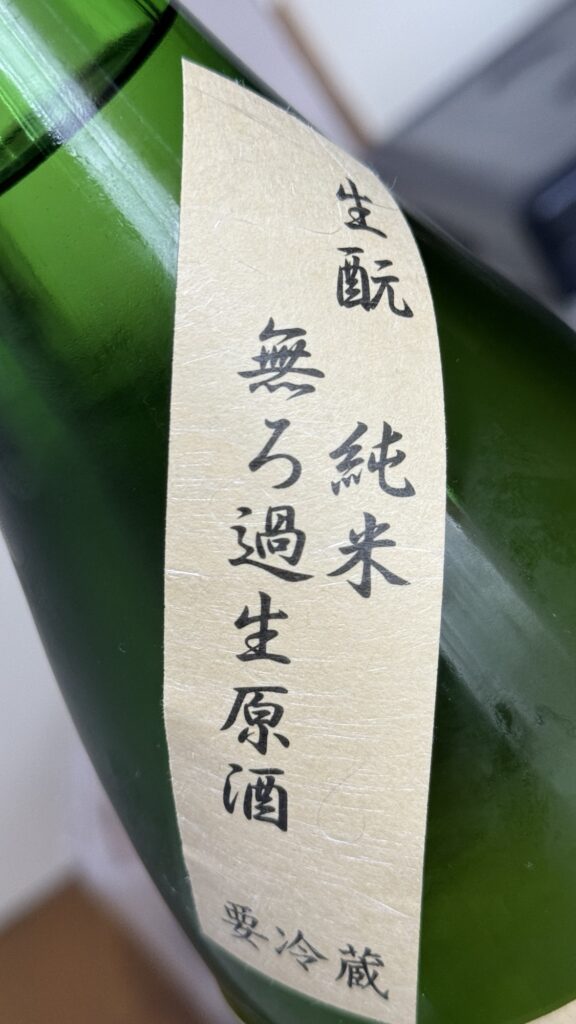 生酛 純米
無ろ過生原酒
要冷蔵